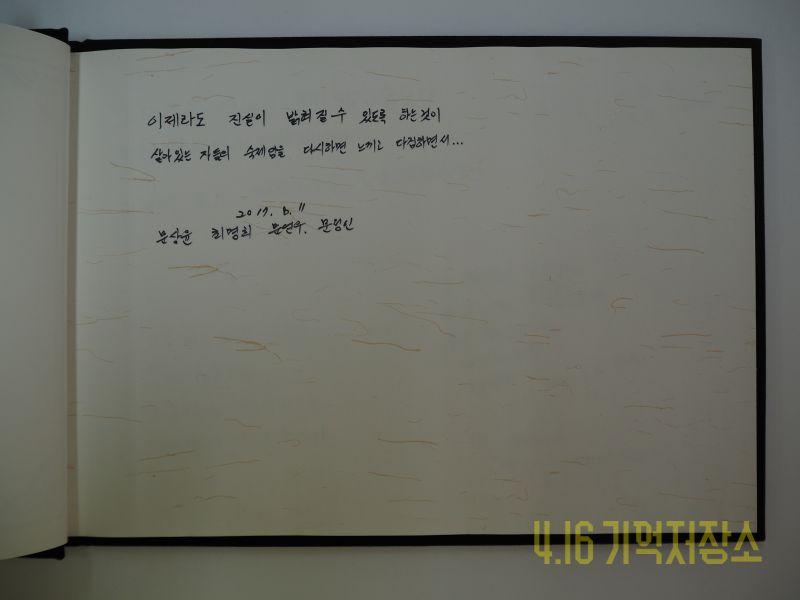 이제라도 진실이 밝혀질 수 있도록 하는것이
살아있는 자들의 숙제임을 다시하면 느끼고 다짐하면서...
2017. 6. 11
문상윤 최명희 문연우. 문성신
4.16 기억저장소